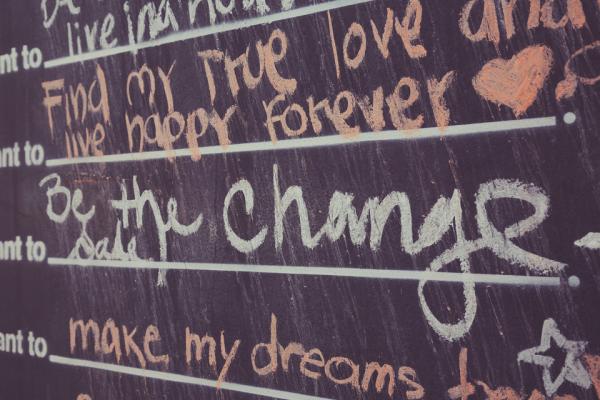 live in a
nt to
Find my True love and
live happy forever
ant to
Be the Change
ant to
ant to make my dreams